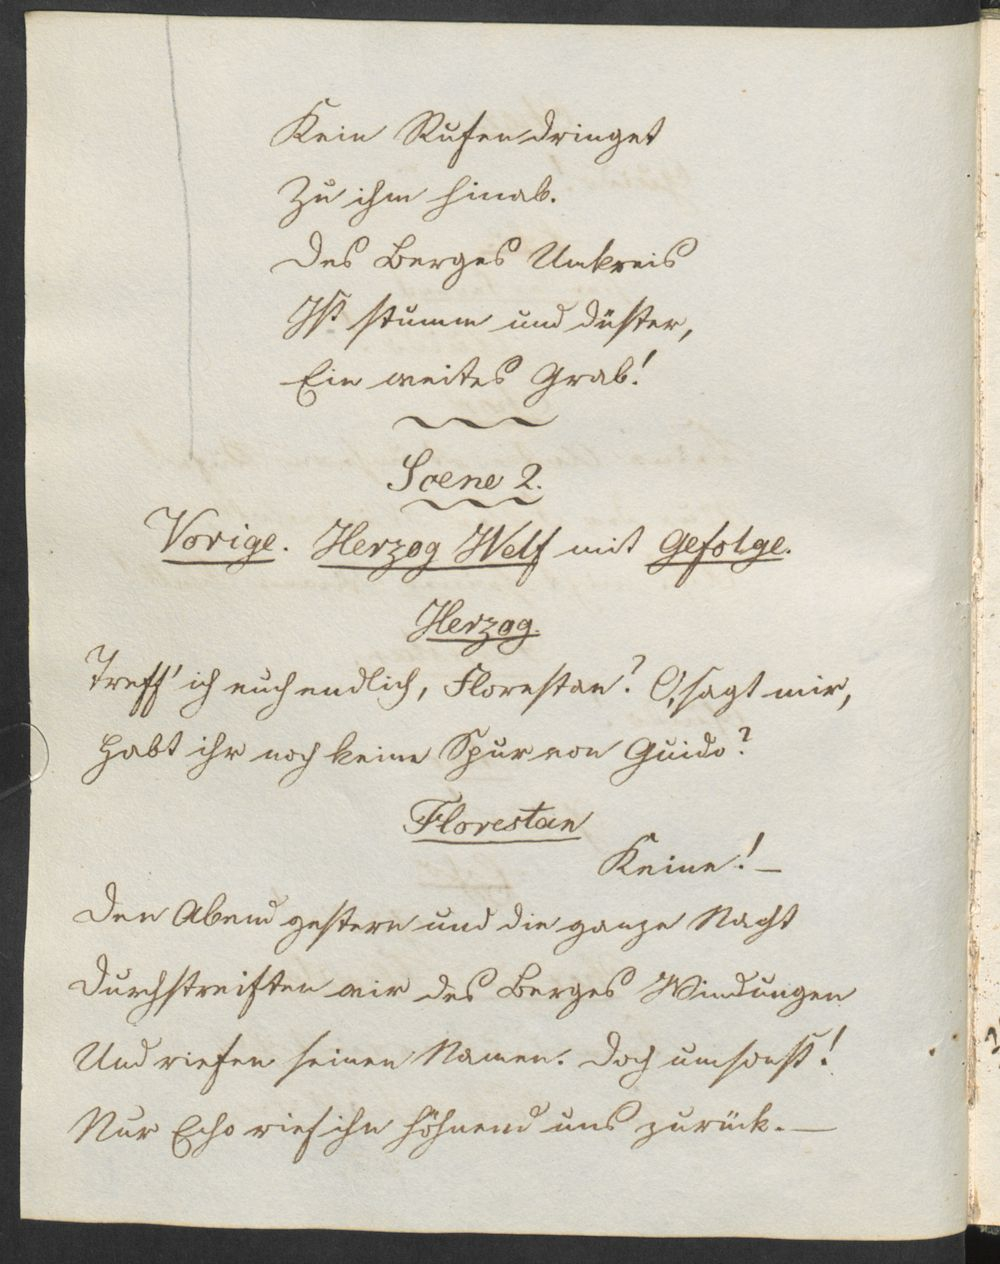 Kein Rufen dringet
Zu ihm hinab.
Des Berges Umkreis
Ist stumm und düster,
Ein weites Grab!
Scene 2.
Vorige. Herzog Welf mit Gefolge.
Herzog.
Treff' ich euch endlich, Florestan? O, sagt mir,
Habt ihr noch keine Spur von Guido?
Florestan
Keine! –
Den Abend gestern und die ganze Nacht
Durchstreiften wir des Berges Windungen
Und riefen seinen Namen. Doch umsonst!
Nur Echo rief ihn höhnend uns zurück. –